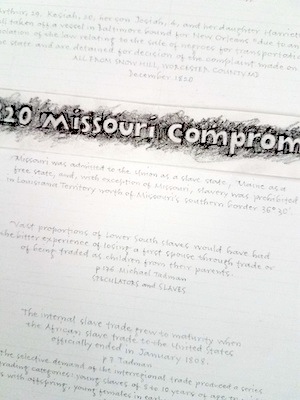 29, Kesiah, 26, her son Josiah, 4, and her daughter Harriett
taken off a vessel in Baltimore bound for New Orleans "due to an
violation of the law relative to the sale of negroes for transportation
the state and are detained for decision of the complaint made on
ALL FROM SNOW HILL, WORCESTER COUNTY, MD
December 1820
20 Missouri Comprom
Missouri was admitted to the Union as a slave state, Maine as a
free state, and, with exception of Missouri, slavery was prohibited
in Louisiana Territory north of Missouri's southern border 36°30'.
"Vast proportions of Lower South slaves would have had
the bitter experience of losing a first spouse through trade or
of being traded as children from their parents.
p.176 Michael Tadman
SPECULATORS and SLAVES
The internal slave trade grew to maturity when
the African slave trade to the United States
officially ended in January 1808.
p.7 Tadman
The selective demand of the interregional trade produced a series
trading categories: young slaves of 5 to 10 years of age
with offspring, young females in early